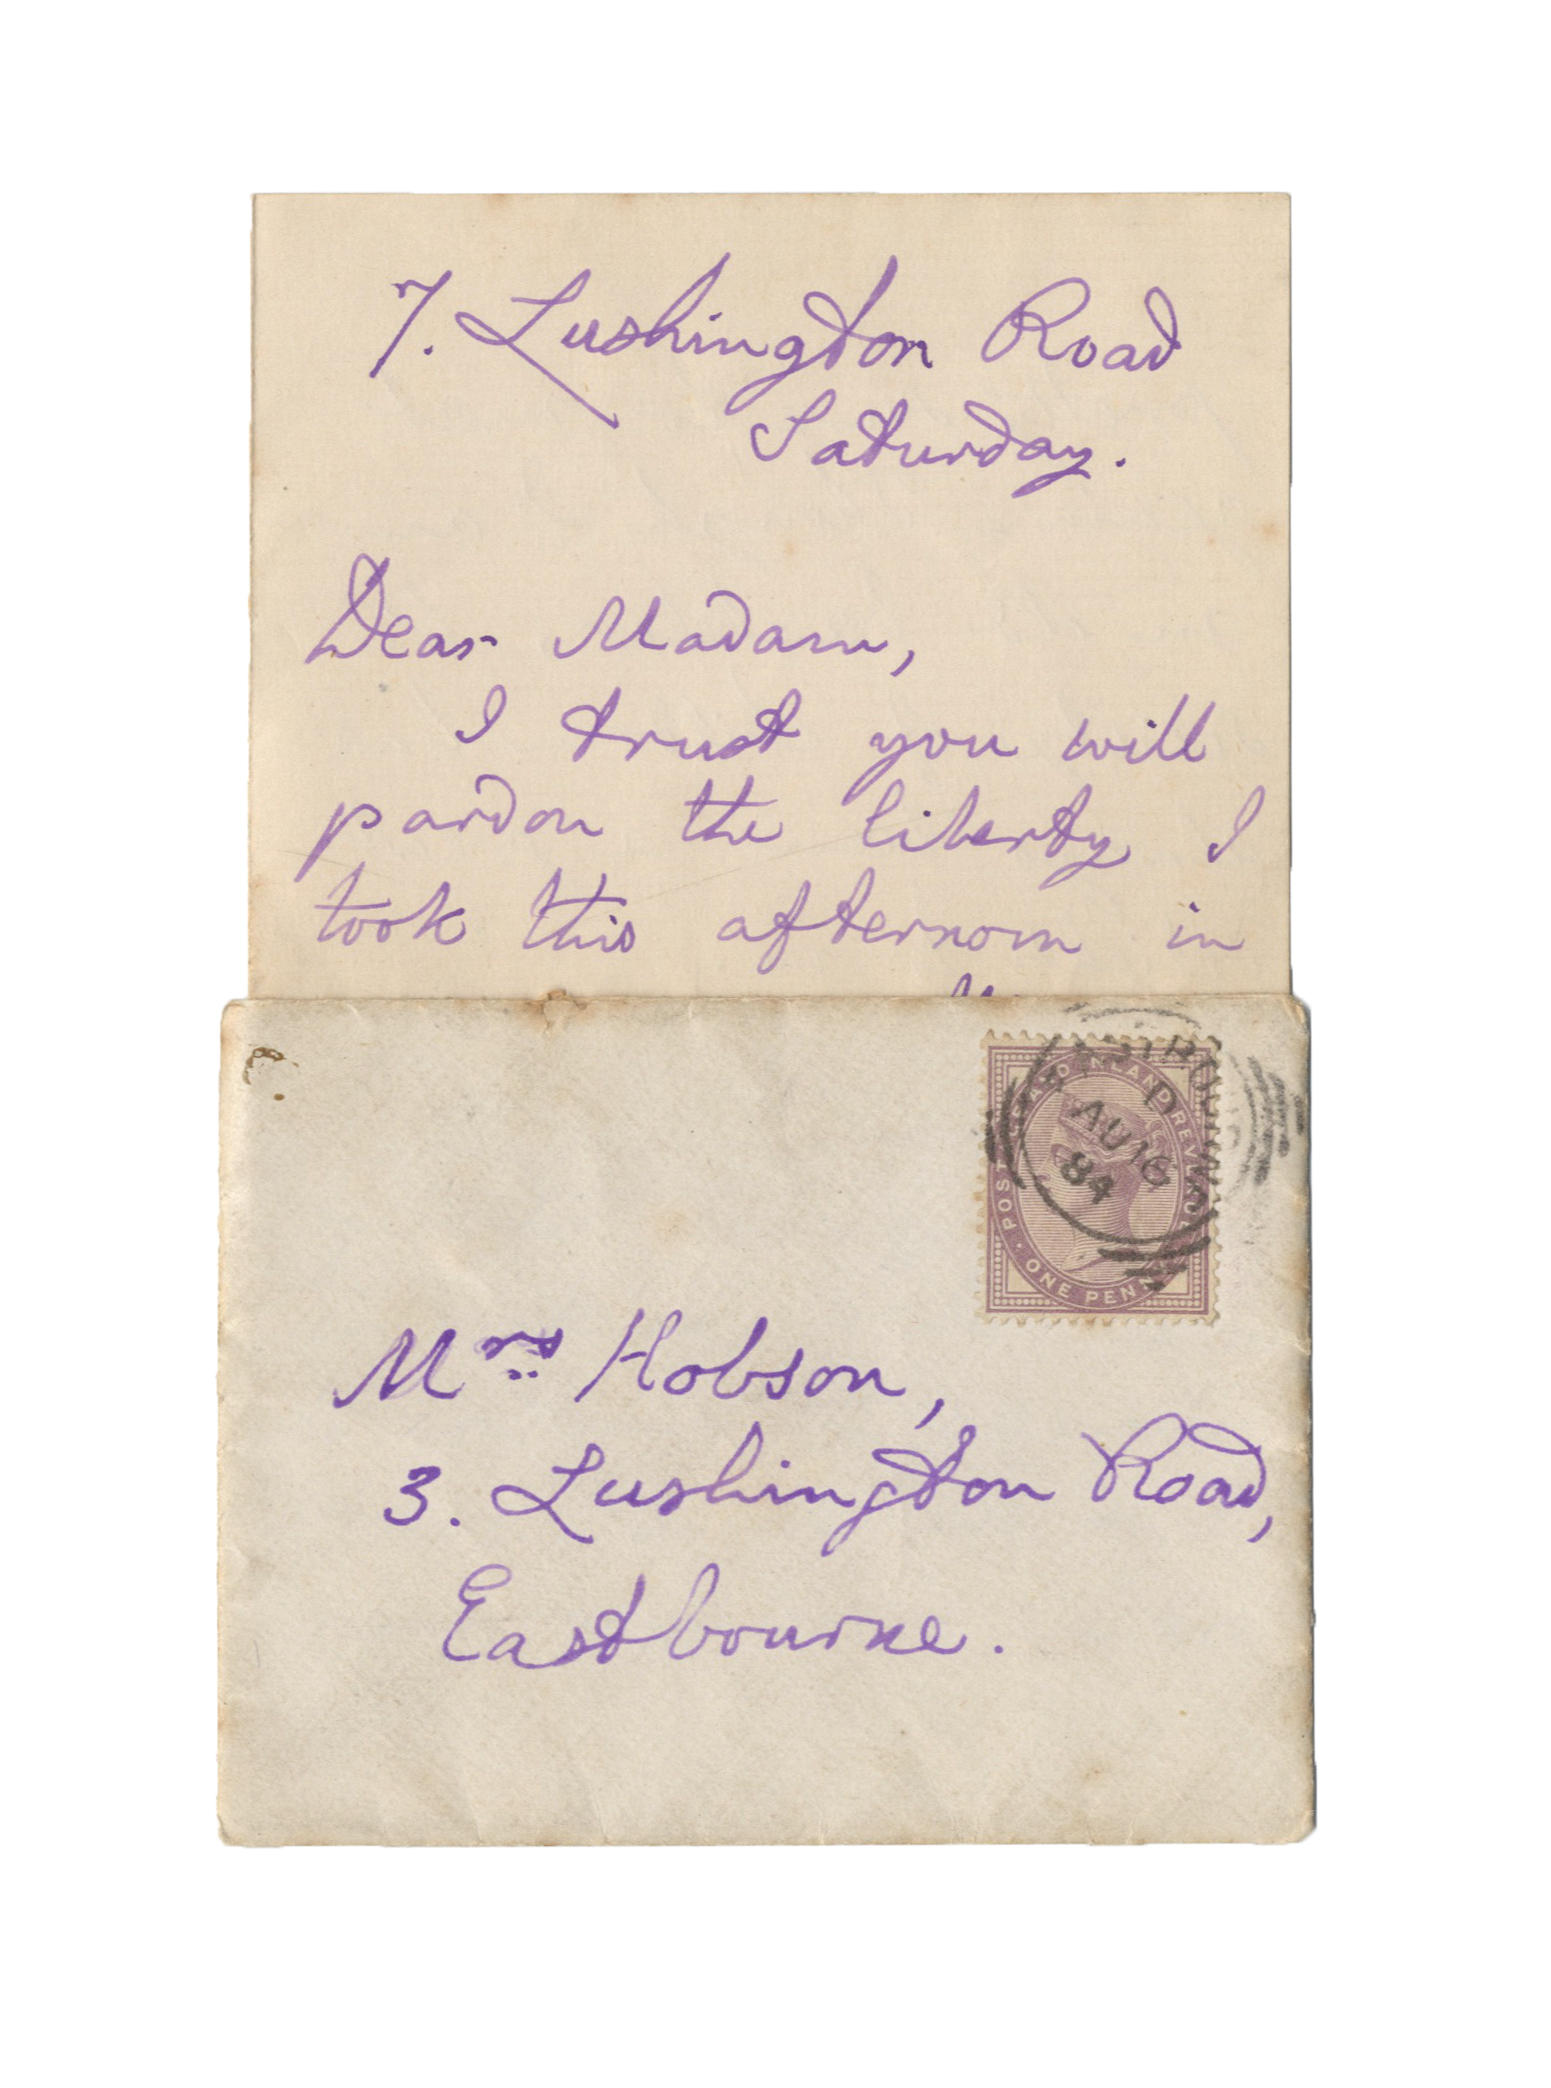 7. Lushington Road
Saturday.
Dear Madam,
I trust you will
pardon the liberty I
took this afternoon in
POSTAGE AND INLAND REVENUE
ONE PENNY
EASTBOURNE
D
AU 16
84
Mrs Hobson,
3. Lushington Road,
Eastbourne.